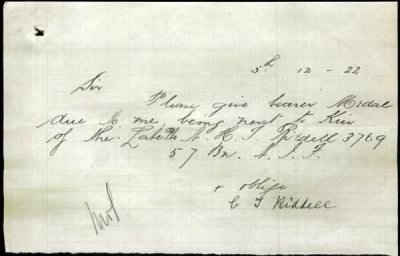 5th 12 - 22
Sir
Please give bearer Medal
due to me, being next to Kin
of the Late A. H. J. Riddell 3769
57 Bn. A. I. F.
& oblige
C J Riddell